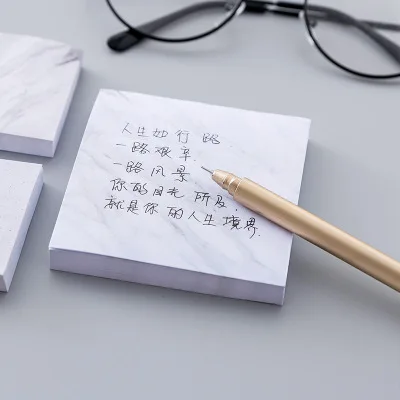 人生如行路
一路艰辛.
一路风景
你的目光所及,
就是你的人生境界.